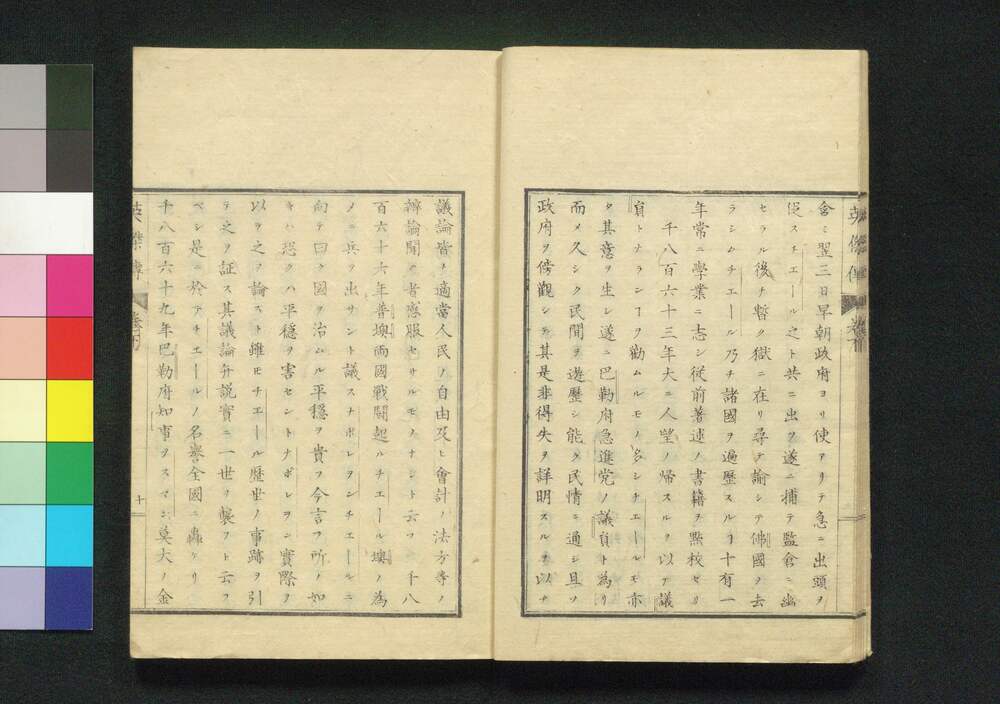 英傑傳 卷下
會ミ翌三日早朝政府ヨリ使アリテ急ニ出頭ヲ
促スチエール之ト共ニ出ツ遂ニ捕テ監倉ニ幽
セラル後チ暫ク獄ニ在リ尋テ諭シテ佛國ヲ去
ラシムチエール乃チ諸國ヲ遍歷スルヿ十有一
年常ニ學業ニ志シ從前著述ノ書籍ヲ點校セリ
千八百六十三年大ニ人望ノ歸スルヲ以テ議
員トナランヿヲ勸ムルモノ多シチエールモ亦
タ其意ヲ生シ遂ニ巴勒府急進党ノ議員ト為リ
而メ久シク民間ヲ遊歷シ能ク民情ニ通シ且ツ
政府ヲ傍觀シテ其是非得失ヲ詳明スルヲ以テ
議論皆ナ適當人民ノ自由及ヒ會計ノ法方等ノ
辨論聞ク者感服セサルモノナシト云フ千八
百六十六年普墺兩國戰鬪起ハチエール墺ノ為
ノニ兵ヲ出サント議スナポレヲンチエールニ
向テ曰ク國ヲ治ムル平穩ヲ貴フ今言フ所ノ如
キハ恐クハ平穩ヲ害セントナポレヲン實際ヲ
以テ之ヲ論スト雖モチエール歷世ノ事跡ヲ引
テ之ヲ証ス其議論弁説實ニ一世ヲ襲フト云フ
ベシ是ニ於テチエールノ名譽全國ニ轟ケリ
千八百六十九年巴勒府知事ヲスマン莫大ノ金
英傑傳 卷下 十